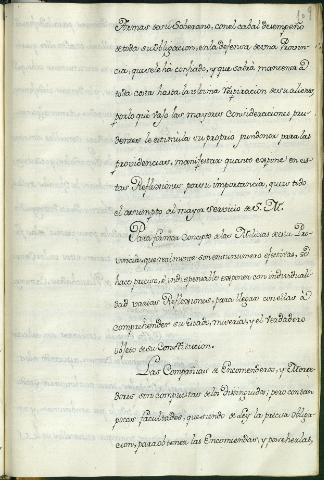 Armas de su Soberano, con el cabal desempeño
de toda su Obligacion, en la defensa de una Provin-
cia, que se le há confiado, y que sabrá mantener á
toda costa hasta la ultima respiracion de su aliento,
por lo que vajo las mayores consideraciones pru-
dentes le estimúla su proprio pundonor para las
providencias, manifestar quanto expone en es-
tas Reflexiones por su importancia, que es todo
el asumpto al mayor servicio de S. M.
Para formar Concepto de las Milicias de esta Pro-
vincia, que realmente son en su numero efectivas, se
hace preciso, é indispensable exponer con individuali-
dad varias Reflexiones, para llegar con ellas á
comprehender su Estado, miseria, y el verdadero
objeto de su Constitucion.
Las Compañias de Encomenderos, y Merce-
darios son compuestas de los distinguidos; pero con tan
pocas facultades, que siendo de Ley la precisa Obliga-
cion, para obtener las Encomiendas, y poseherlas,